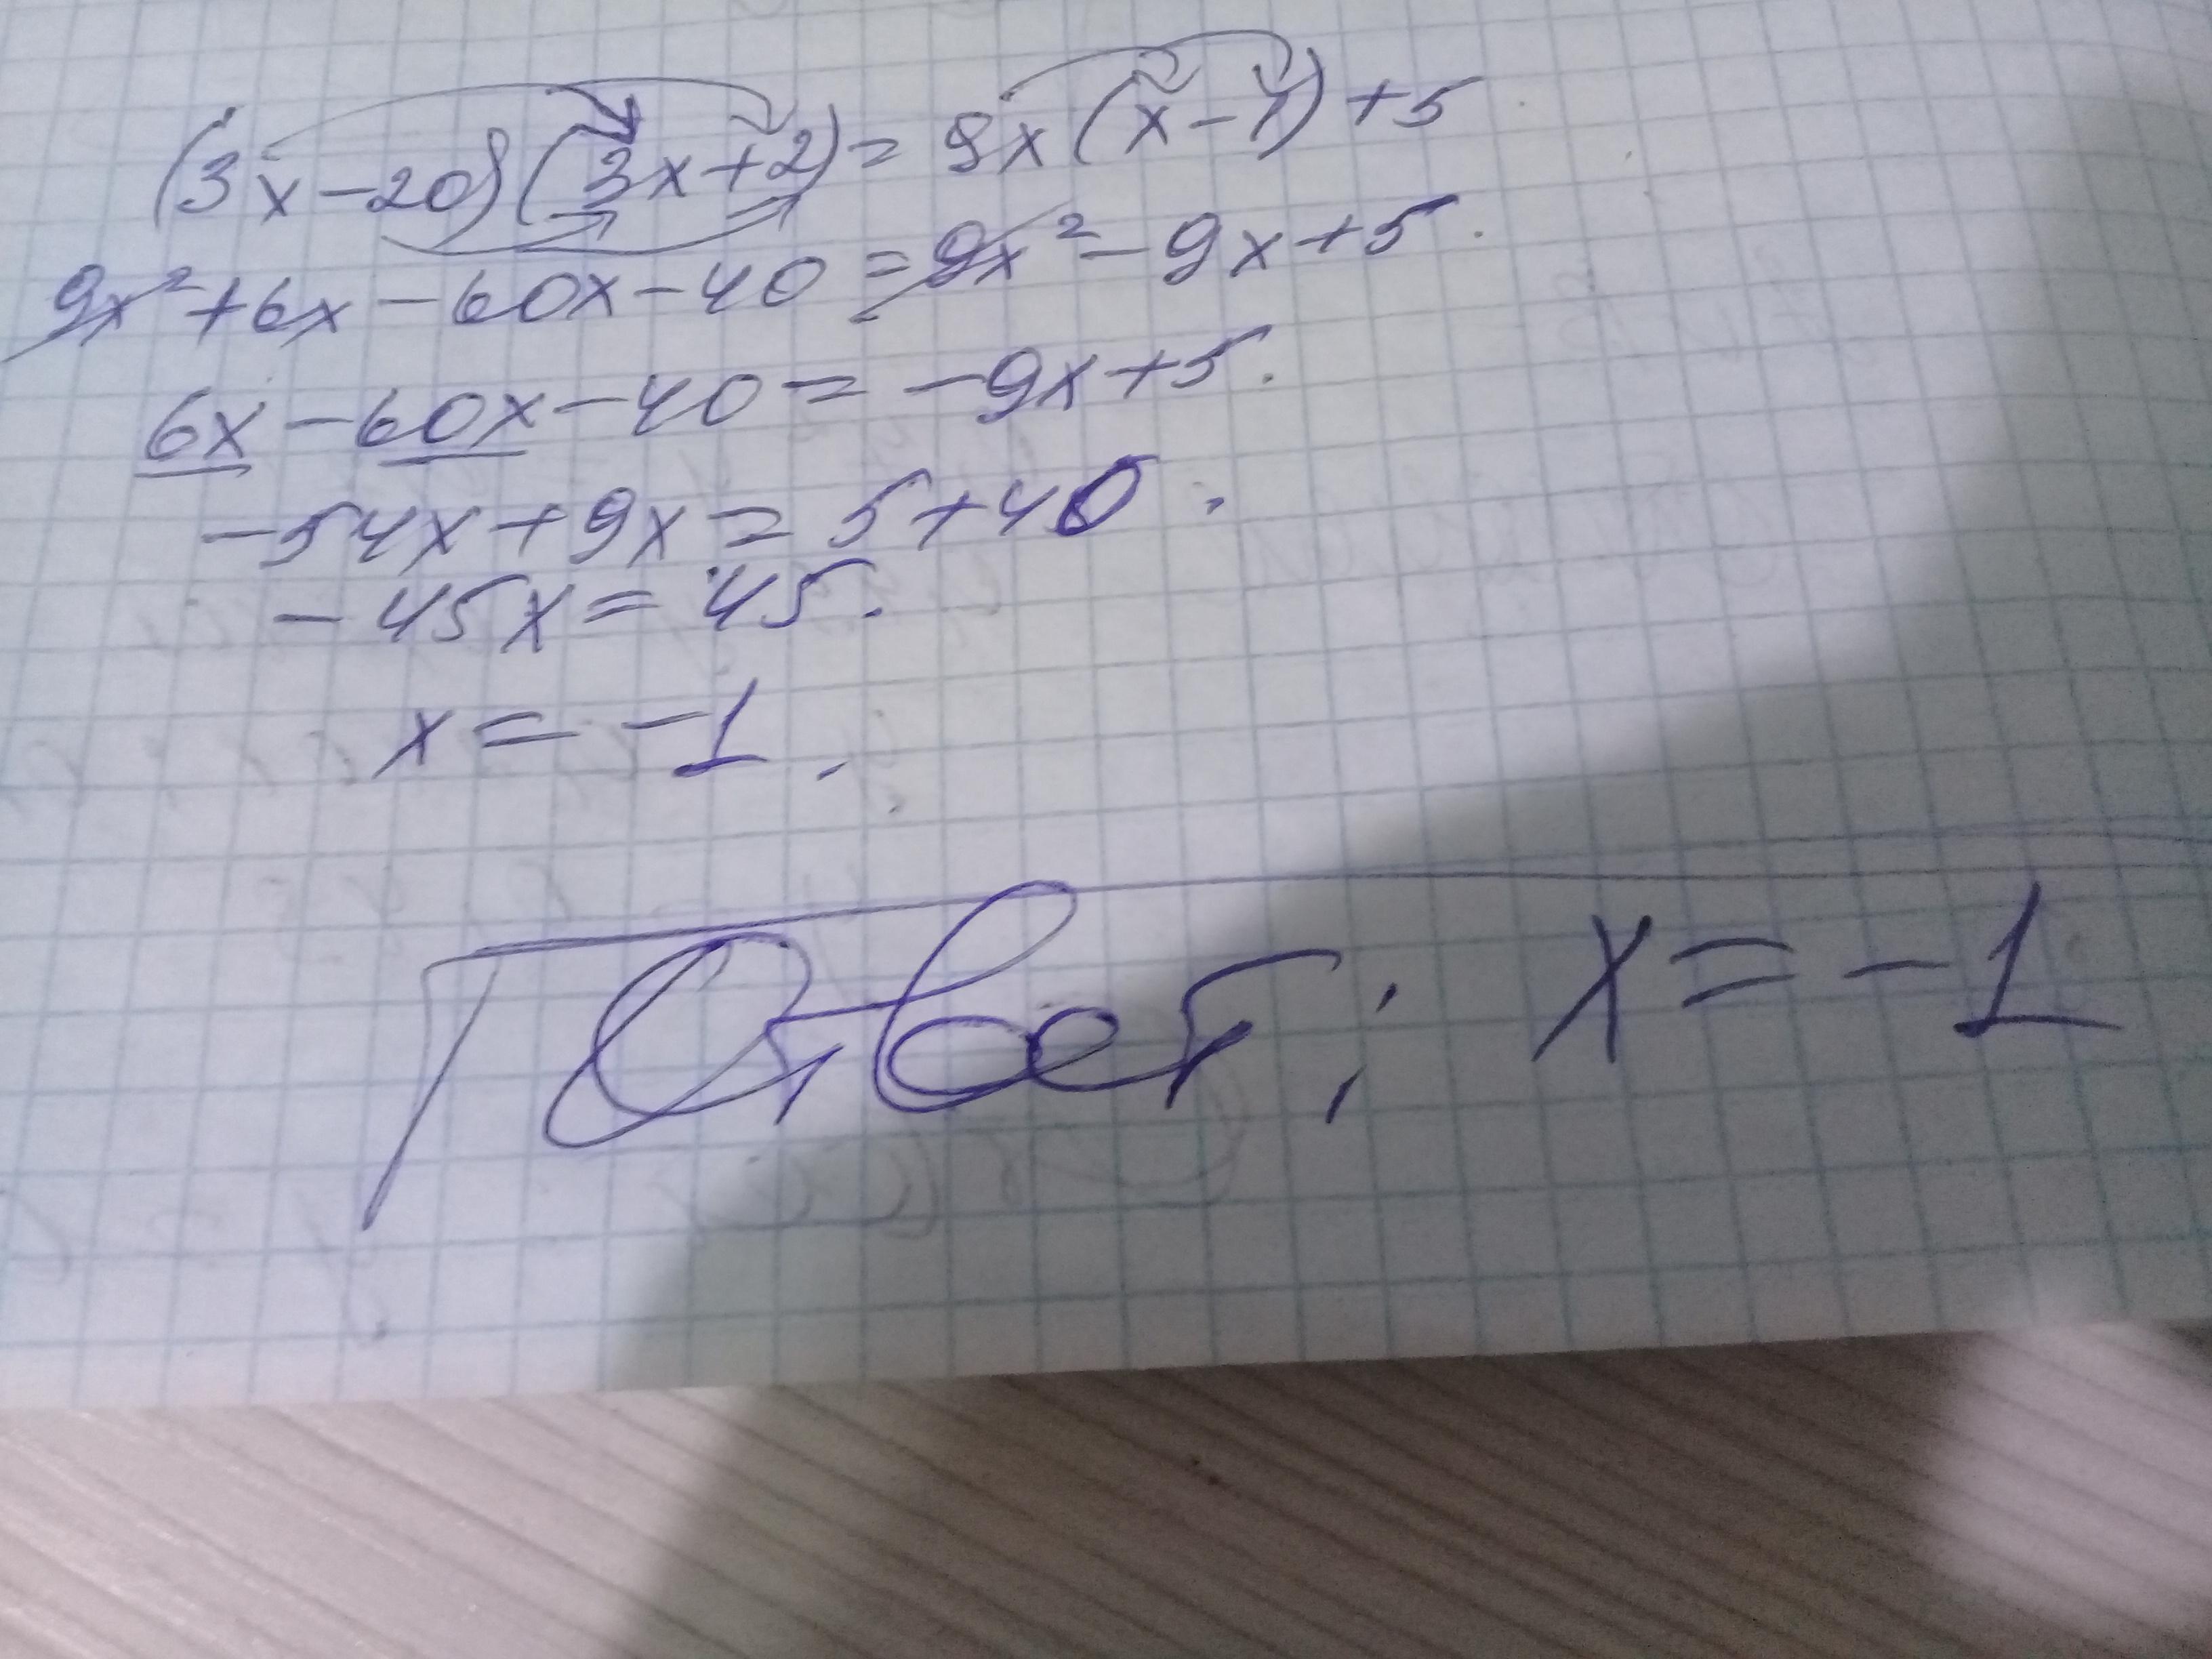 (3x-20)(3x+2)=9x(x-1)+5
9x²+6x-60x-40=9x²-9x+5.
6x-60x-40=-9x+5.
-54x+9x=5+40.
-45x=45.
x=-1.
Ответ: x=-1